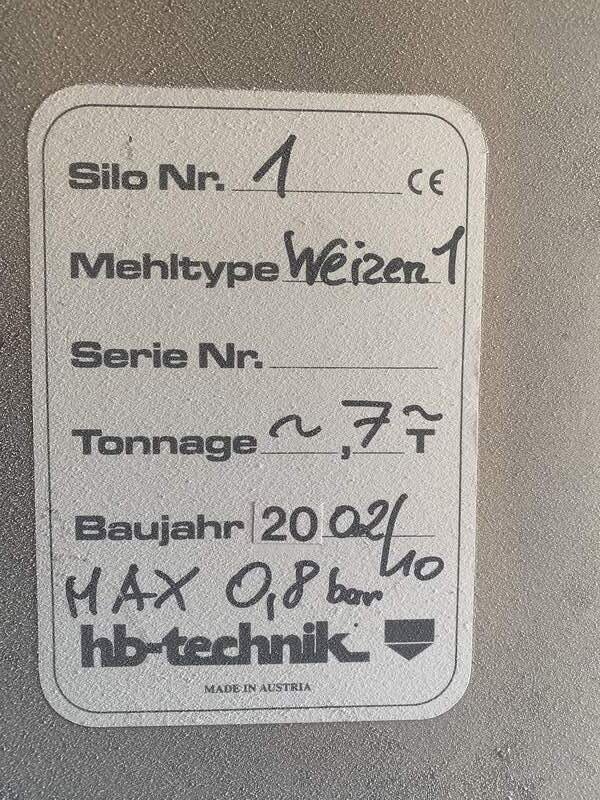 Silo Nr. 1 CE
Mehltype Weizen 1
Serie Nr.
Tonnage ~,7 ~ T
Baujahr 2002/10
MAX 0,8 bar
hb-technik
MADE IN AUSTRIA